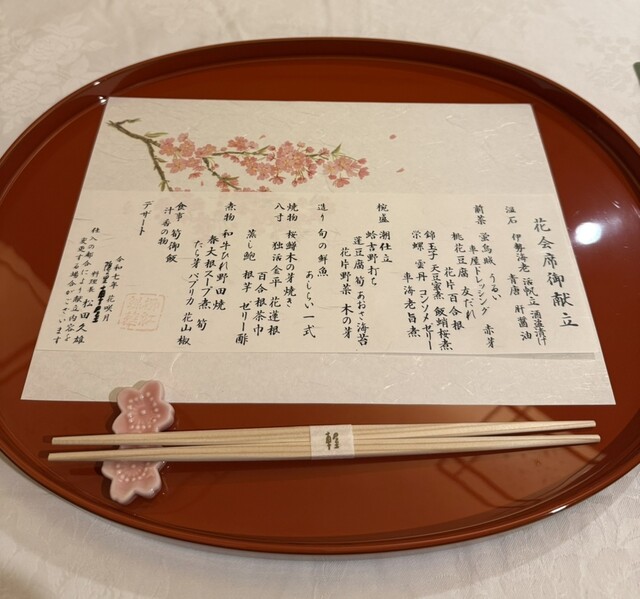 花会席御献立
温石 伊勢海老 活帆立 酒盗漬け
青唐 肝醤油
前菜 蛍烏賊 うるい 赤芽
車屋ドレッシング
桃花豆腐 友だれ
花片百合根
錦玉子 天豆蜜煮 飯蛸桜煮
栄螺 雲丹 コンソメゼリー
車海老旨煮
椀盛 潮仕立
蛤吉野打ち
蓬豆腐 筍 あおさ海苔
花片野菜 木の芽
造り 旬の鮮魚
あしらい一式
焼物 桜鱒木の芽焼き
八寸 独活金平 花蓮根
百合根茶巾
蒸し鮑 根芋 ゼリー酢
煮物 和牛ひれ野田焼
春大根スープ煮 筍
たら芽 パプリカ 花山椒
食事 筍御飯
汁 香の物
デザート
令和七年 花咲月
料理長 松田久雄
仕入の都合により献立内容を
変更する場合がございます